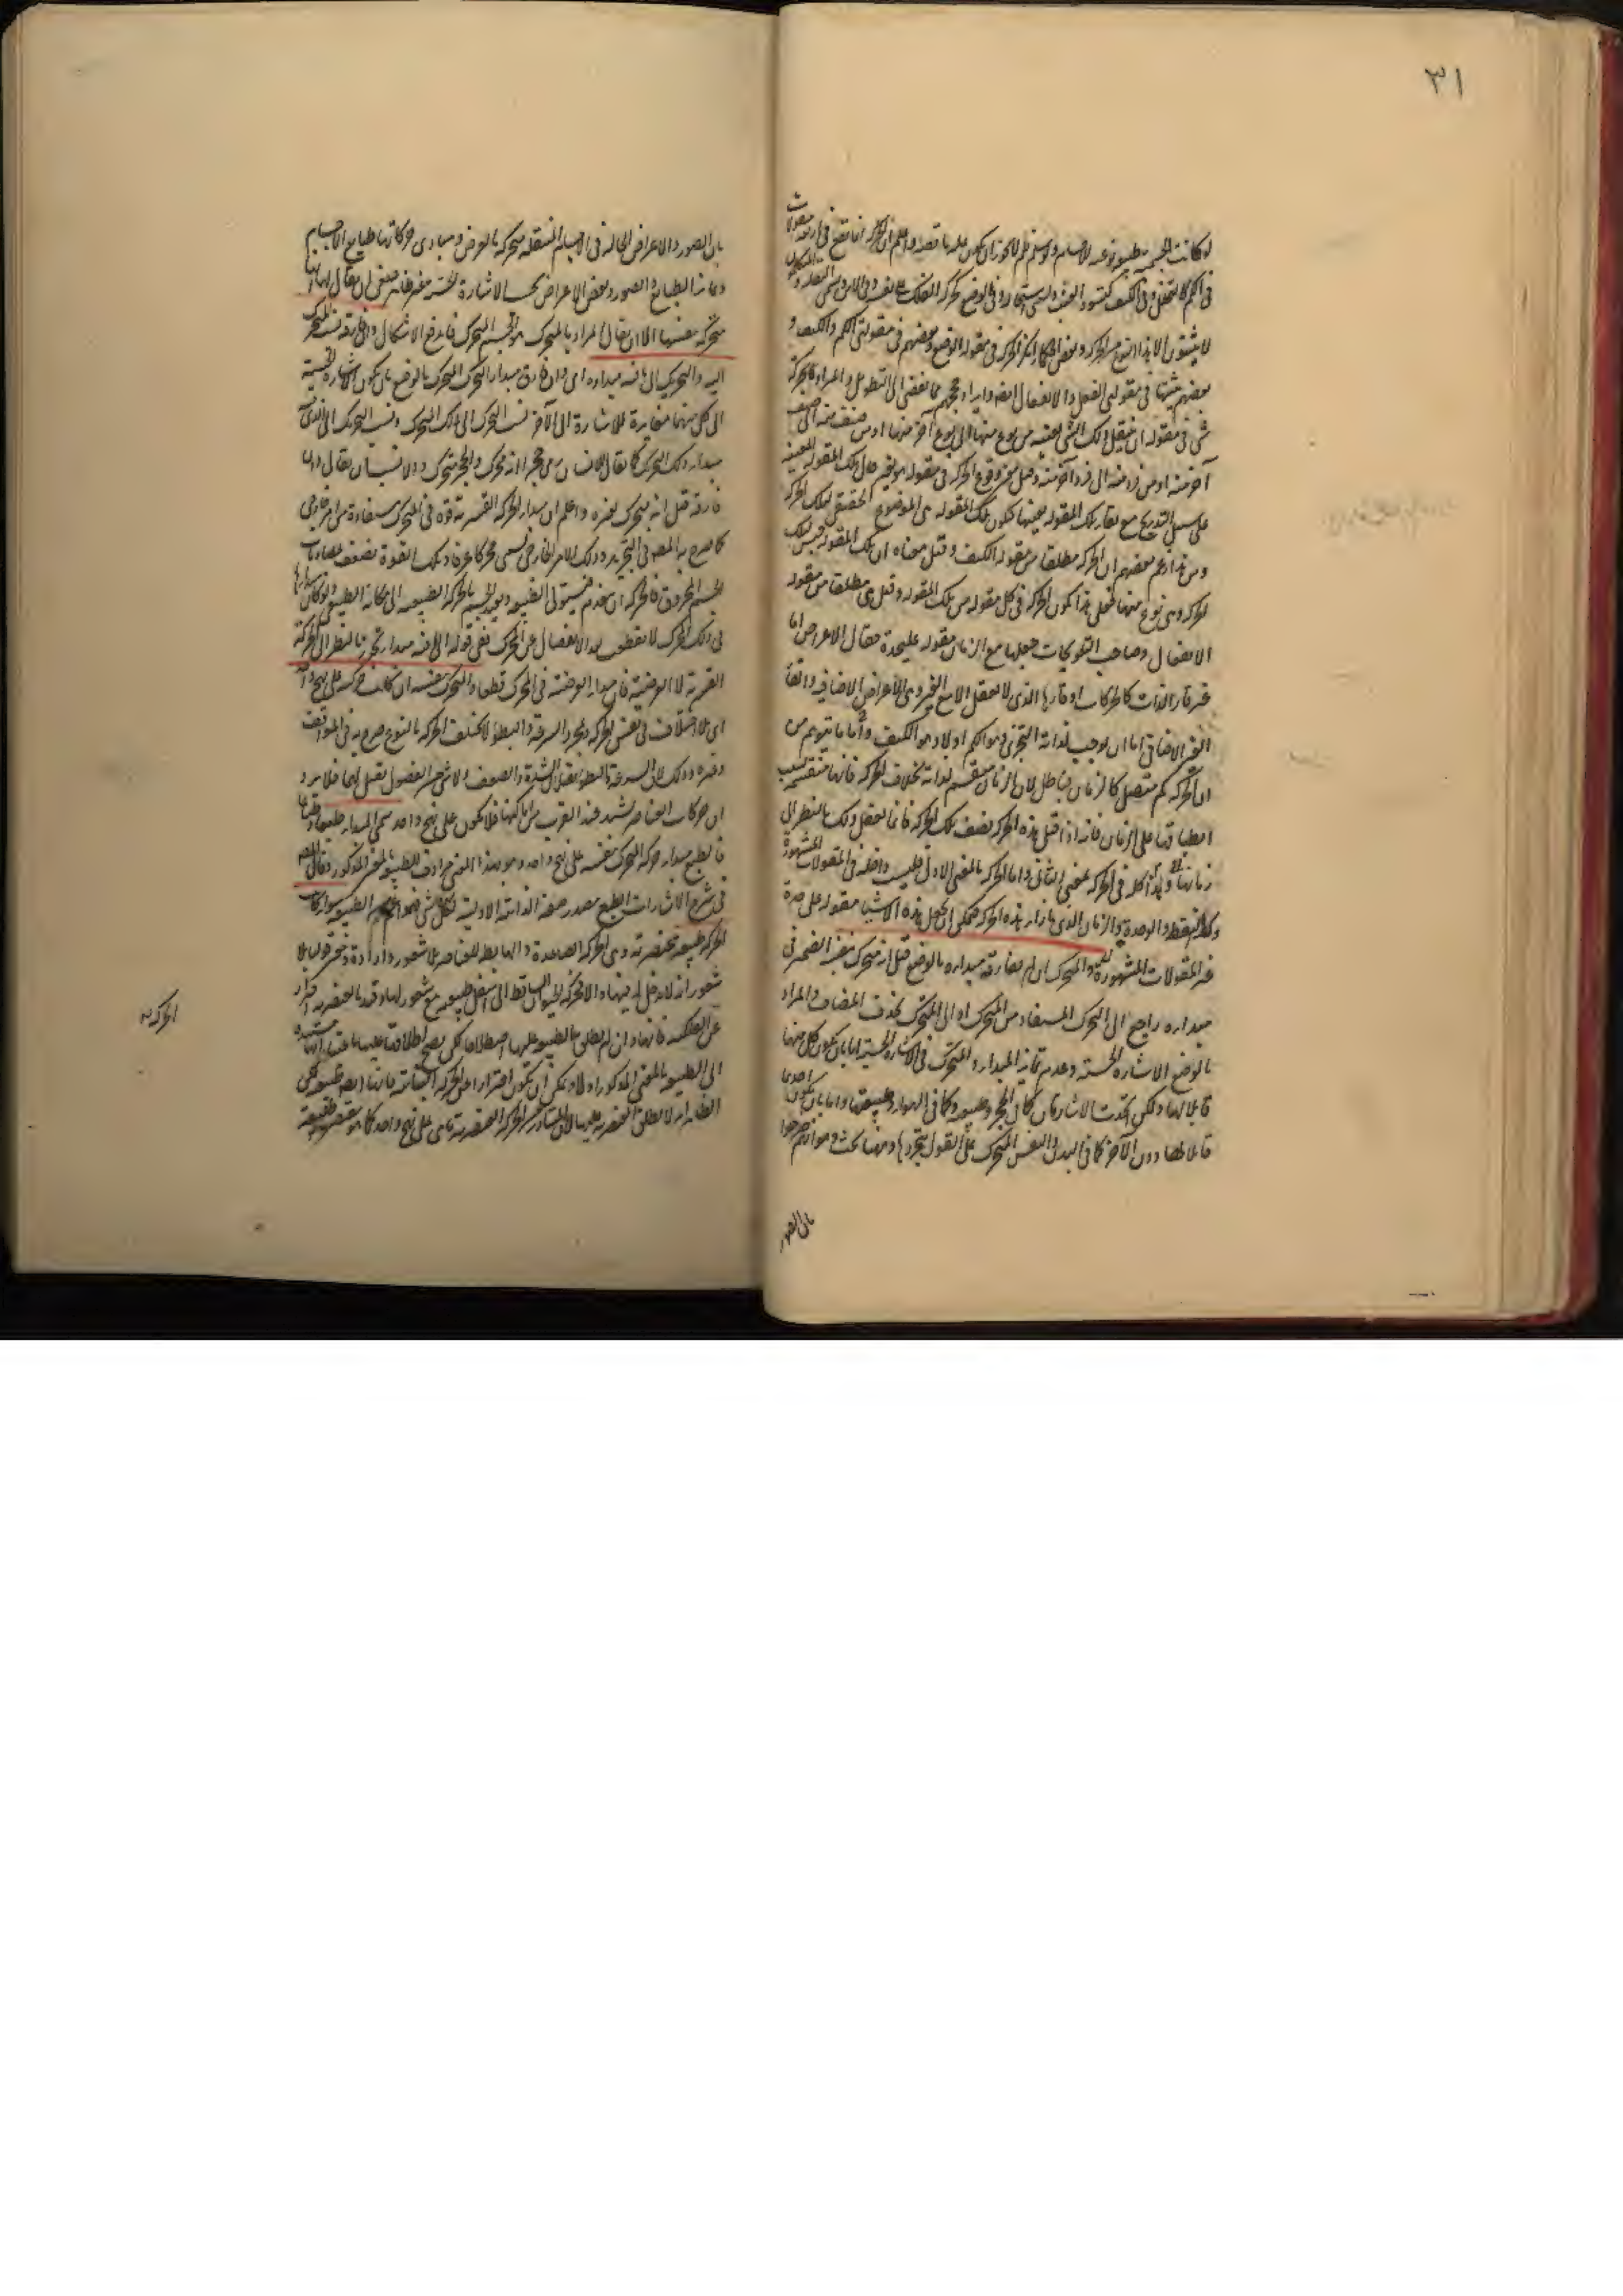 ٣١
لو كانت الجسمية طبيعة نوعية للاجسام ولو سلم فلم لا يجوز ان يكون علة ناقصة واعلم ان الحركة انما تقع في اربع مقولات
في الكم كالتخلخل وفي الكيف وفي الوضع كحركة الفلك على نفسه وفي الاين
لا يثبتون الا هذا النوع من الحركة وبعض الحكماء انكر الحركة في مقولة الوضع وبعضهم في مقولتي الكم والكيف و
بعضهم يثبتها في مقولتي الفعل والانفعال ايضا وايراد حججهم مما يفضي الى التطويل والمراد بالحركة
شيء في مقولة ان ينتقل ذلك الشيء بعينه من نوع منها الى نوع آخر منها او من صنف منه الى صنف
آخر منه او من فرد منه الى فرد آخر منه وقيل معنى وقوع الحركة في مقولة هو تغير حال تلك المقولة المعينة
على سبيل التدريج مع بقاء تلك المقولة بعينها فتكون تلك المقولة هي الموضوع الحقيقي لتلك الحركة
ومن هذا زعم بعضهم ان الحركة مطلقا من مقولة الكيف وقيل معناه ان تلك المقولة جنس لتلك
الحركة وهي نوع منها فعلى هذا تكون الحركة في كل مقولة من تلك المقولة وقيل هي مطلقا من مقولة
الانفعال وصاحب التلويحات جعلها مع الزمان مقولة عليحدة فقال الاعراض اما
غير قار الذات كالحركات او قارها الذي لا يعقل الا مع الغير وهي الاعراض الاضافية والقار
الغير الاضافي اما ان يوجب لذاته التجزي وهو الكم او لا وهو الكيف واما ما يتوهم من
ان الحركة كم متصل كالزمان فباطل لان الزمان منقسم لذاته بخلاف الحركة فانها منقسمة بسبب
انطباقها على الزمان فانه اذا قيل هذه الحركة نصف تلك الحركة فانما يعقل ذلك بالنظر الى
زمانها وهذا كله في الحركة بمعنى الثاني واما الحركة بالمعنى الاول فليست داخلة في المقولات المشهورة
وكذا النقطة والوحدة والزمان الذي بازاء هذه الحركة فيمكن ان يجعل هذه الاشياء مقولة على حدة
غير المقولات المشهورة والمتحرك ان لم يفارقه مبداؤه بالوضع قيل انه متحرك بنفسه الضمير في
مبداؤه راجع الى التحرك المستفاد من المتحرك او الى المتحرك بحذف المضاف والمراد
بالوضع الاشارة الحسية وعدم تمايز المبدا و المتحرك في الاشارة الحسية اما بان يكون كل منهما
قابلا لها ولكن اتحدت الاشارتان كما في الحجر وطبيعته وكما في الهواء وطبيعتها واما بان يكون احدهما
قابلا لها دون الآخر كما في البدن والنفس المتحرك على القول بتجردها وههنا بحث وهو انهم صرحوا
بان الصور
بان الصور والاعراض الحالة في الاجسام المنتقلة متحركة بالعرض ومبادي حركاتها طبايع الاجسام
وتمايز الطبايع والصور وبعض الاعراض بحسب الاشارة الحسية غير ظاهر فينبغي ان يقال لها انها
متحركة بنفسها الا ان يقال المراد بالمتحرك هو الجسم المتحرك فاندفع الاشكال وان فارقه نسب التحرك
اليه والتحريك الى ما فيه مبداؤه اي وان فارق مبداء التحرك المتحرك بالوضع بان يكون الاشارة الحسية
الى كل منهما مغايرة للاشارة الى الآخر نسب التحرك الى ذلك المتحرك ونسب التحريك الى الذي فيه
مبداء ذلك التحرك كما يقال للانسان رمى حجرا انه محرك والحجر متحرك والانسان يقال وان
فارقه قيل انه متحرك بغيره واعلم ان مبداء الحركة القسرية قوة في المتحرك مستفادة من امر خارجي
كما صرح به المصنف في التجريد وذلك الامر الخارجي يسمى محركا عرفا وتلك القوة تضعف بمصادمات
الجسم المخروق فالحركة ان تنعدم فتستولي الطبيعة ويعيد الجسم بالحركة الطبيعية الى مكانه الطبيعي ولو كان مبداؤها
في ذلك المحرك لانقطعت بعد الانفصال عن المحرك ففي قوله الى ما فيه مبداء تحرز بالنظر الى الحركة
القسرية لا العرضية فان مبداء العرضية في المحرك قطعا والمتحرك بنفسه ان كانت حركته على نهج واحد
اي بلا اختلاف في نفس الحركة وبمجرد السرعة والبطؤ لا تختلف الحركة بالنوع صرح به في المواقف
وغيره وذلك لان السرعة والبطؤ يقبلان الشدة والضعف ولا شيء من الفصول يقبل لهما فلا يرد
ان حركات العناصر تشتد عند القرب من اماكنها فلا تكون على نهج واحد سمي المبداء طبيعة وطبعا
فالطبع مبداء حركة المتحرك بنفسه على نهج واحد وهو بهذا المعنى مرادف للطبيعة بالمعنى المذكور وقال المصنف
في شرح الاشارات الطبع مصدر صفة الذاتية الاولية لكل شيء فهو اعم من الطبيعة سواء كانت
الحركة طبيعية عنصرية وهي الحركة الصاعدة والهابطة للعناصر بلا شعور وارادة وغير قول بلا
شعور انه لا دخل له فيها والا فحركة الحيوان الساقط الى اسفل طبيعية مع شعوره لها وقيد بالعنصرية احتراز
عن الفلكية فانها وان لم يطلق الطبيعة عليها اصطلاحا لكن يصح اطلاقها عليها باعتبار انها مستندة
الى الطبيعة بالمعنى المذكور اولا ويمكن ان تكون احترازا عن الحركة النباتية فانها ايضا طبيعية لكن
الظاهر انه لا يطلق العنصرية عليها لان المتبادر من الحركة العنصرية ما هي على نهج واحد كما هو مقتضى طبيعة
الحركة